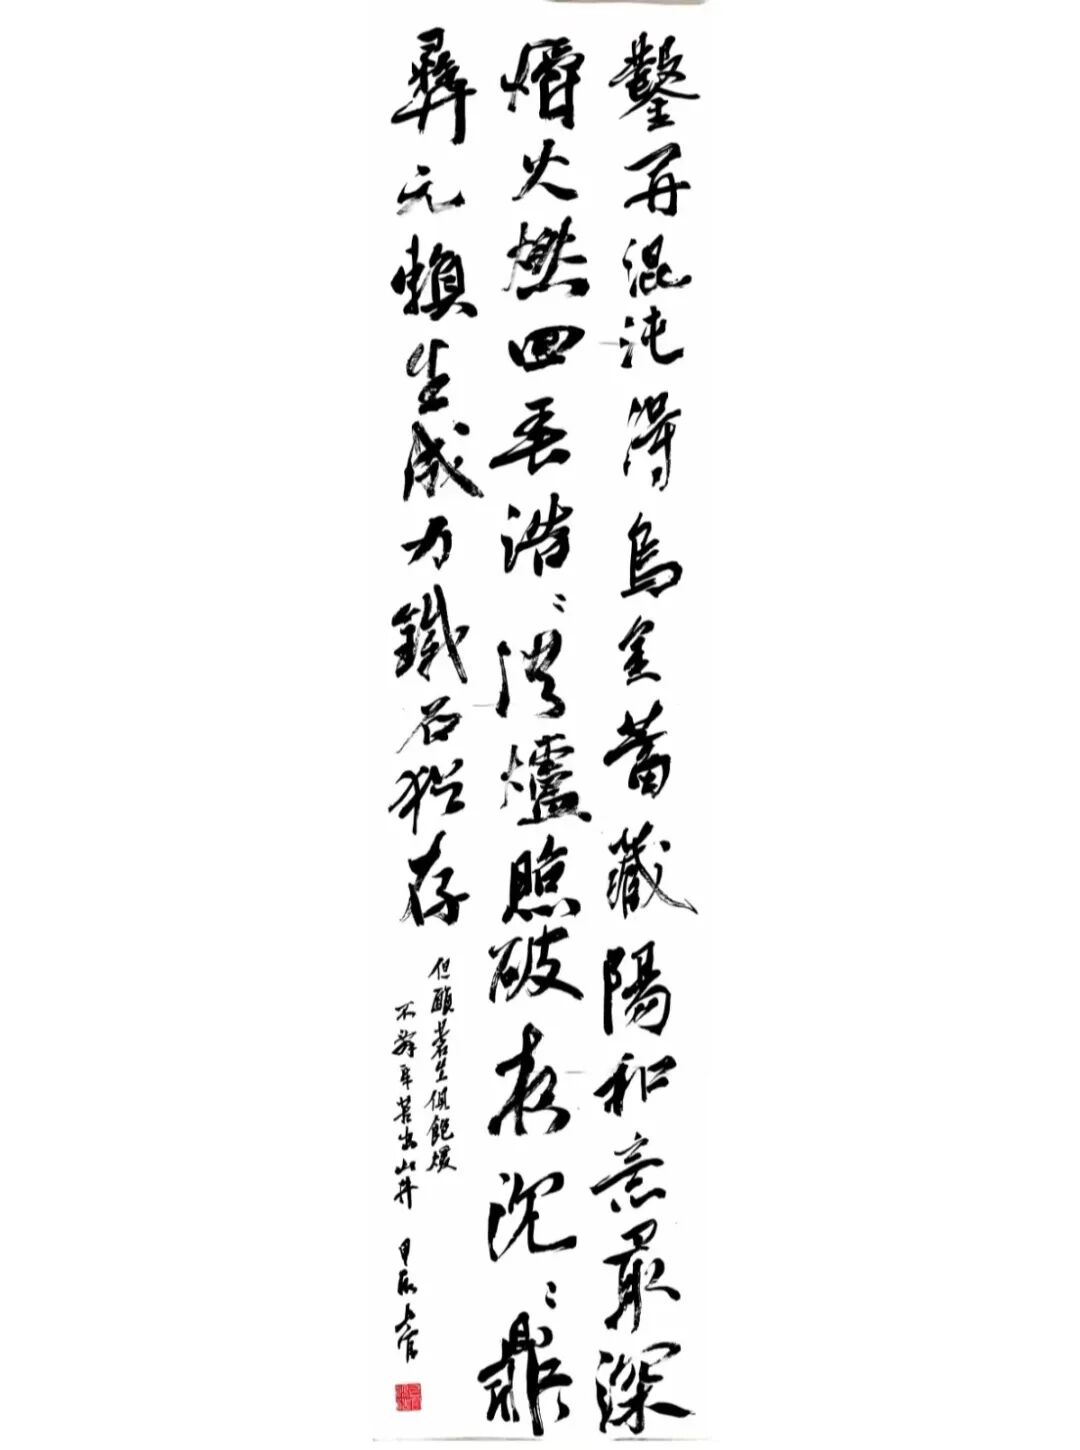 鑿开混沌得烏金蓄藏陽和意最深
爝火燃回春浩〻洪爐照破夜沉〻鼎
彝元賴生成力鐵石猶存
但願蒼生俱飽煖
不辭辛苦出山林 甲辰